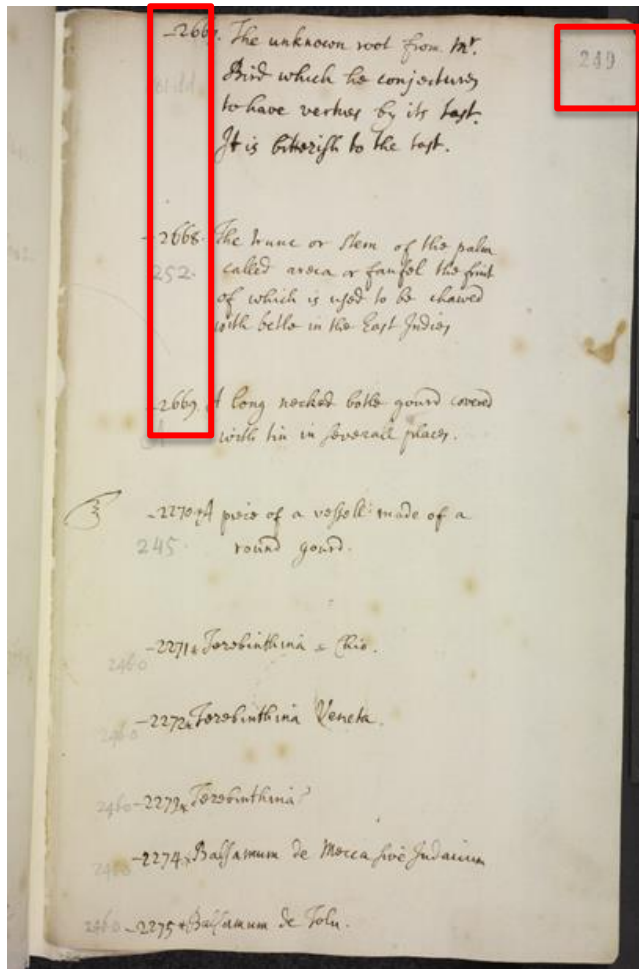 249
-2667. The unknown root from Mr.
Bird which he conjectures
to have vertues by its tast.
It is bitterish to the tast.
-2668. The trunc or stem of the palm
252. called areca or faufel the fruit
of which is used to be chawed
with betle in the East Indies
-2669. A long necked botle gourd covered
with tin in severall places.
-2270. A piece of a vessell made of a
245. round gourd.
-2271 Terebinthina e Chio.
2460
-2272 Terebinthina Veneta.
2460
2460 -2273 Terebinthina
-2274 Balsamum de Mecca sive Judaicum
2460
2460 -2275 Balsamum de Tolu.